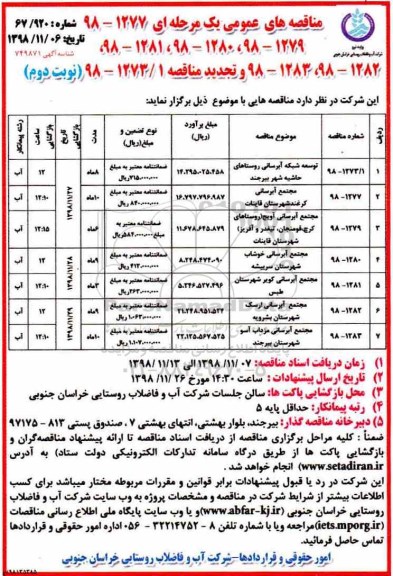 مناقصه های عمومی یک مرحله ای ۱۲۷۷-۹۸
۱۲۷۹-۹۸، ۱۲۸۰-۹۸، ۱۲۸۱-۹۸
۱۲۸۲-۹۸، ۱۲۸۳-۹۸ و تجدید مناقصه ۱۲۷۳/۱-۹۸ (نوبت دوم)
شماره: ۶۷/۹۲۰
تاریخ: ۱۳۹۸/۱۱/۰۶
شناسه آگهی ۷۴۹۸۷۱
این شرکت در نظر دارد مناقصه هایی با موضوع ذیل برگزار نماید:
ردیف شماره مناقصه موضوع مناقصه مبلغ برآورد (ریال) نوع تضمین و مبلغ(ریال) مدت تاریخ بازگشایی ساعت بازگشایی رشته پیمانکار
۱ ۱۲۷۳/۱-۹۸ توسعه شبکه آبرسانی روستاهای حاشیه شهر بیرجند ۱۴.۲۹۵.۰۲۵.۴۵۸ ضمانتنامه معتبر به مبلغ ۷۱۵.۰۰۰.۰۰۰ریال ۸ماه ۱۳۹۸/۱۱/۲۷ ۱۲ آب
۲ ۱۲۷۷-۹۸ مجتمع آبرسانی کرغندشهرستان قاینات ۱۶.۷۹۷.۷۹۶.۹۸۷ ضمانتنامه معتبر به مبلغ ۸۴۰.۰۰۰.۰۰۰ ریال ۱۰ماه ۱۲:۱۰ آب
۳ ۱۲۷۹-۹۸ مجتمع آبرسانی آویج(روستاهای کرج،فومنجان، تیغدر و آفریز) شهرستان قاینات ۱۱.۶۷۸.۶۲۵.۸۷۹ ضمانتنامه معتبر به مبلغ۵۸۴.۰۰۰.۰۰۰ریال ۶ماه ۱۲:۱۵ آب
۴ ۱۲۸۰-۹۸ مجتمع آبرسانی خوشاب شهرستان سربیشه ۸.۲۴۸.۴۷۴.۰۹۰ ضمانتنامه معتبر به مبلغ ۴۱۳.۰۰۰.۰۰۰ ریال ۹ماه ۱۳۹۸/۱۱/۲۸ ۱۲ آب
۵ ۱۲۸۱-۹۸ مجتمع آبرسانی کویر شهرستان طبس ۵.۲۴۶.۵۲۷.۴۹۶ ضمانتنامه معتبر به مبلغ ۲۶۳.۰۰۰.۰۰۰ ریال ۳ماه ۱۲:۱۰ آب
۶ ۱۲۸۲-۹۸ مجتمع آبرسانی ارسک شهرستان بشرویه ۲۱.۲۴۸.۹۵۱.۵۲۴ ضمانتنامه معتبر به مبلغ ۱.۰۶۳.۰۰۰.۰۰۰ ریال ۹ماه ۱۳۹۸/۱۱/۲۹ ۱۲ آب
۷ ۱۲۸۳-۹۸ مجتمع آبرسانی مزداب آسو شهرستان بیرجند ۲۲.۱۲۵.۵۶۷.۵۲۵ ضمانتنامه معتبر به مبلغ ۱.۱۰۷.۰۰۰.۰۰۰ ریال ۱۰ماه ۱۲:۱۰ آب
۱) زمان دریافت اسناد مناقصه: ۱۳۹۸/۱۱/۰۷ الی ۱۳۹۸/۱۱/۱۳
۲) تاریخ ارسال پیشنهادات : ساعت ۱۴:۳۰ مورخ ۱۳۹۸/۱۱/۲۶
۳) محل بازگشایی پاکت ها: سالن جلسات شرکت آب و فاضلاب روستایی خراسان جنوبی
۴) رتبه پیمانکار: حداقل پایه ۵
۵) دبیرخانه مناقصه گذار: بیرجند، بلوار بهشتی، انتهای بهشتی ۷، صندوق پستی ۸۱۳ - ۹۷۱۷۵
ضمناً : کلیه مراحل برگزاری مناقصه از دریافت اسناد مناقصه تا ارائه پیشنهاد مناقصه‌گران و
بازگشایی پاکت ها از طریق درگاه سامانه تدارکات الکترونیکی دولت ستاد) به آدرس
(www.setadiran.ir انجام خواهد شد .
این شرکت در رد یا قبول پیشنهادات برابر قوانین و مقررات مربوطه مختار میباشد برای کسب
اطلاعات بیشتر از شرایط شرکت در مناقصه و مشخصات پروژه به وب سایت شرکت آب و فاضلاب
روستایی خراسان جنوبی (www.abfar-kj.ir)و یا وب سایت پایگاه ملی اطلاع رسانی مناقصات
(iets.mporg.ir)مراجعه ویا با شماره تلفن ۸ - ۳۲۲۱۴۷۵۲ - ۰۵۶ اداره امور حقوقی و قراردادها
تماس حاصل فرمائید.
امور حقوقی و قراردادها-شرکت آب و فاضلاب روستایی خراسان جنوبی